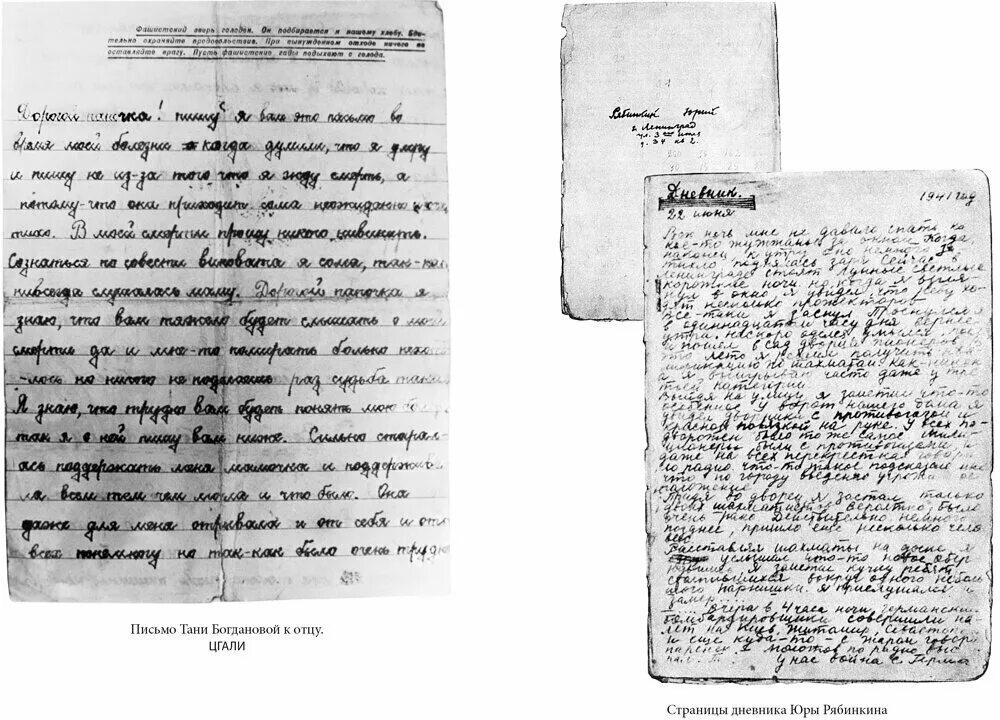 Фашистский зверь голоден. Он подбирается к нашему хлебу. Бди-
тельно охраняйте продовольствие. При вынужденном отходе ничего не
оставляйте врагу. Пусть фашистские гады подыхают с голода.
Дорогой папочка! пишу я вам это письмо во
время моей болезни и когда думали, что я умру
и пишу не из-за того что я жду смерть, а
потому-что она приходит сама неожиданно и
тихо. В моей смерти прошу никого не винить.
Сознаться по совести виновата я сама, так-как
никогда слушалась маму. Дорогой папочка я
знаю, что вам тяжело будет слышать о моей
смерти да и мне-то помирать больно нехоте-
-лось но ничего не поделаешь раз судьба такая
Я знаю, что трудно вам будет понять мою
так я о ней пишу вам ниже. Сильно старал-
ась поддержать меня мамочка и поддержива-
ла всем тем чем могла и что было. Она
даже для меня отрывала и от себя и от
всех понемногу но так-как было очень трудно
Письмо Тани Богдановой к отцу.
ЦГАЛИ
Рябинкин Юрий
г. Ленинград
ул. 3
д. 34 кв 2.
Дневник. 1941 год
22 июня
Всю ночь мне не давало спать ка-
кое-то жужжанье за окном. Когда
наконец к утру оно немного
тихло поднялась заря. Сейчас в
Ленинграде стоят лунные светлые
короткие ночи. Но когда я взгля-
нул в окно я увидел что небу хо-
дят несколько прожекторов
Все-таки я заснул. Проснулся я
в одиннадцатом часу дня вернее
утра. Наскоро оделся умылся
и пошел в сад дворца пионеров. В
это лето я решил получить ква-
лификацию по шахматам. Как-никак
а я выигрываю часто даже у тре-
тьей категории
Выйдя на улицу я заметил что-то
особенное. У ворот нашего дома я
увидел дворника с противогазом и
красной повязкой на руке. У всех по-
дворотен было то же самое. Мили-
ционеры были с противогазами и
даже на всех перекрестках говори-
ло радио. Что-то такое подсказало мне
что по городу введено угрожаемое
положение
Придя во дворец я застал только
двоих шахматистов. Вероятно, было
очень рано. Действительно, немного
позднее, пришло еще несколько чело-
век
Расставляя шахматы на доске, я
услышал что-то новое обер-
нувшись я заметил кучку ребят
столпившихся вокруг одного неболь-
шого парнишки. Я прислушался и
замер...
...Вчера в 4 часа ночи, германские
бомбардировщики совершили на-
лет на Киев, Житомир, Севастополь
и еще куда-то – с жаром говорил
паренек. – Молотов по радио выс-
У нас война с
Страницы дневника Юры Рябинкина